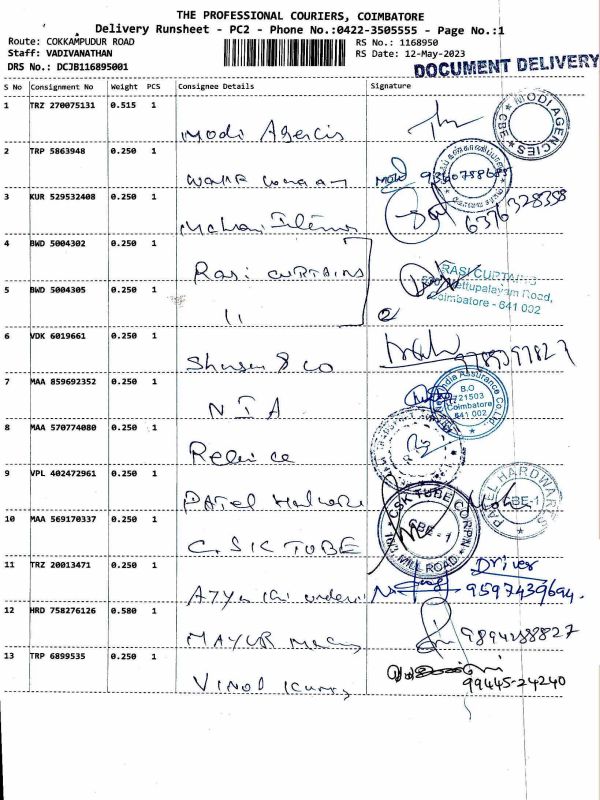 THE PROFESSIONAL COURIERS, COIMBATORE
Delivery Runsheet - PC2 - Phone No.:0422-3505555 - Page No.:1
Route: COKKAMPUDUR ROAD
RS No.: 1168950
Staff: VADIVANATHAN
RS Date: 12-May-2023
DRS No.: DCJB116895001
DOCUMENT DELIVERY
S No Consignment No Weight PCS Consignee Details Signature
1 TRZ 270075131 0.515 1
Modi Agencis
MODI AGENCIES CBE
2 TRP 5863948 0.250 1
3 KUR 529532408 0.250 1
6376328358
4 BWD 5004302 0.250 1
Rasi CURTAINS
RASI CURTAINS
Mettupalayam Road,
Coimbatore - 641 002
5 BWD 5004305 0.250 1
11
6 VDK 6019661 0.250 1
& co
7 MAA 859692352 0.250 1
NIA
India Assurance Co Ltd
B.O
721503
Coimbatore
641 002
8 MAA 570774080 0.250 1
9 VPL 402472961 0.250 1
Patel
PATEL HARDWARES
CBE-1
10 MAA 569170337 0.250 1
C.S.K TUBE
CSK TUBE CORPN
CBE - 1
MILL ROAD
11 TRZ 20013471 0.250 1
Driver
9597439694.
12 HRD 758276126 0.580 1
MAYUR
9894288827
13 TRP 6899535 0.250 1
VINOD
99445-24240